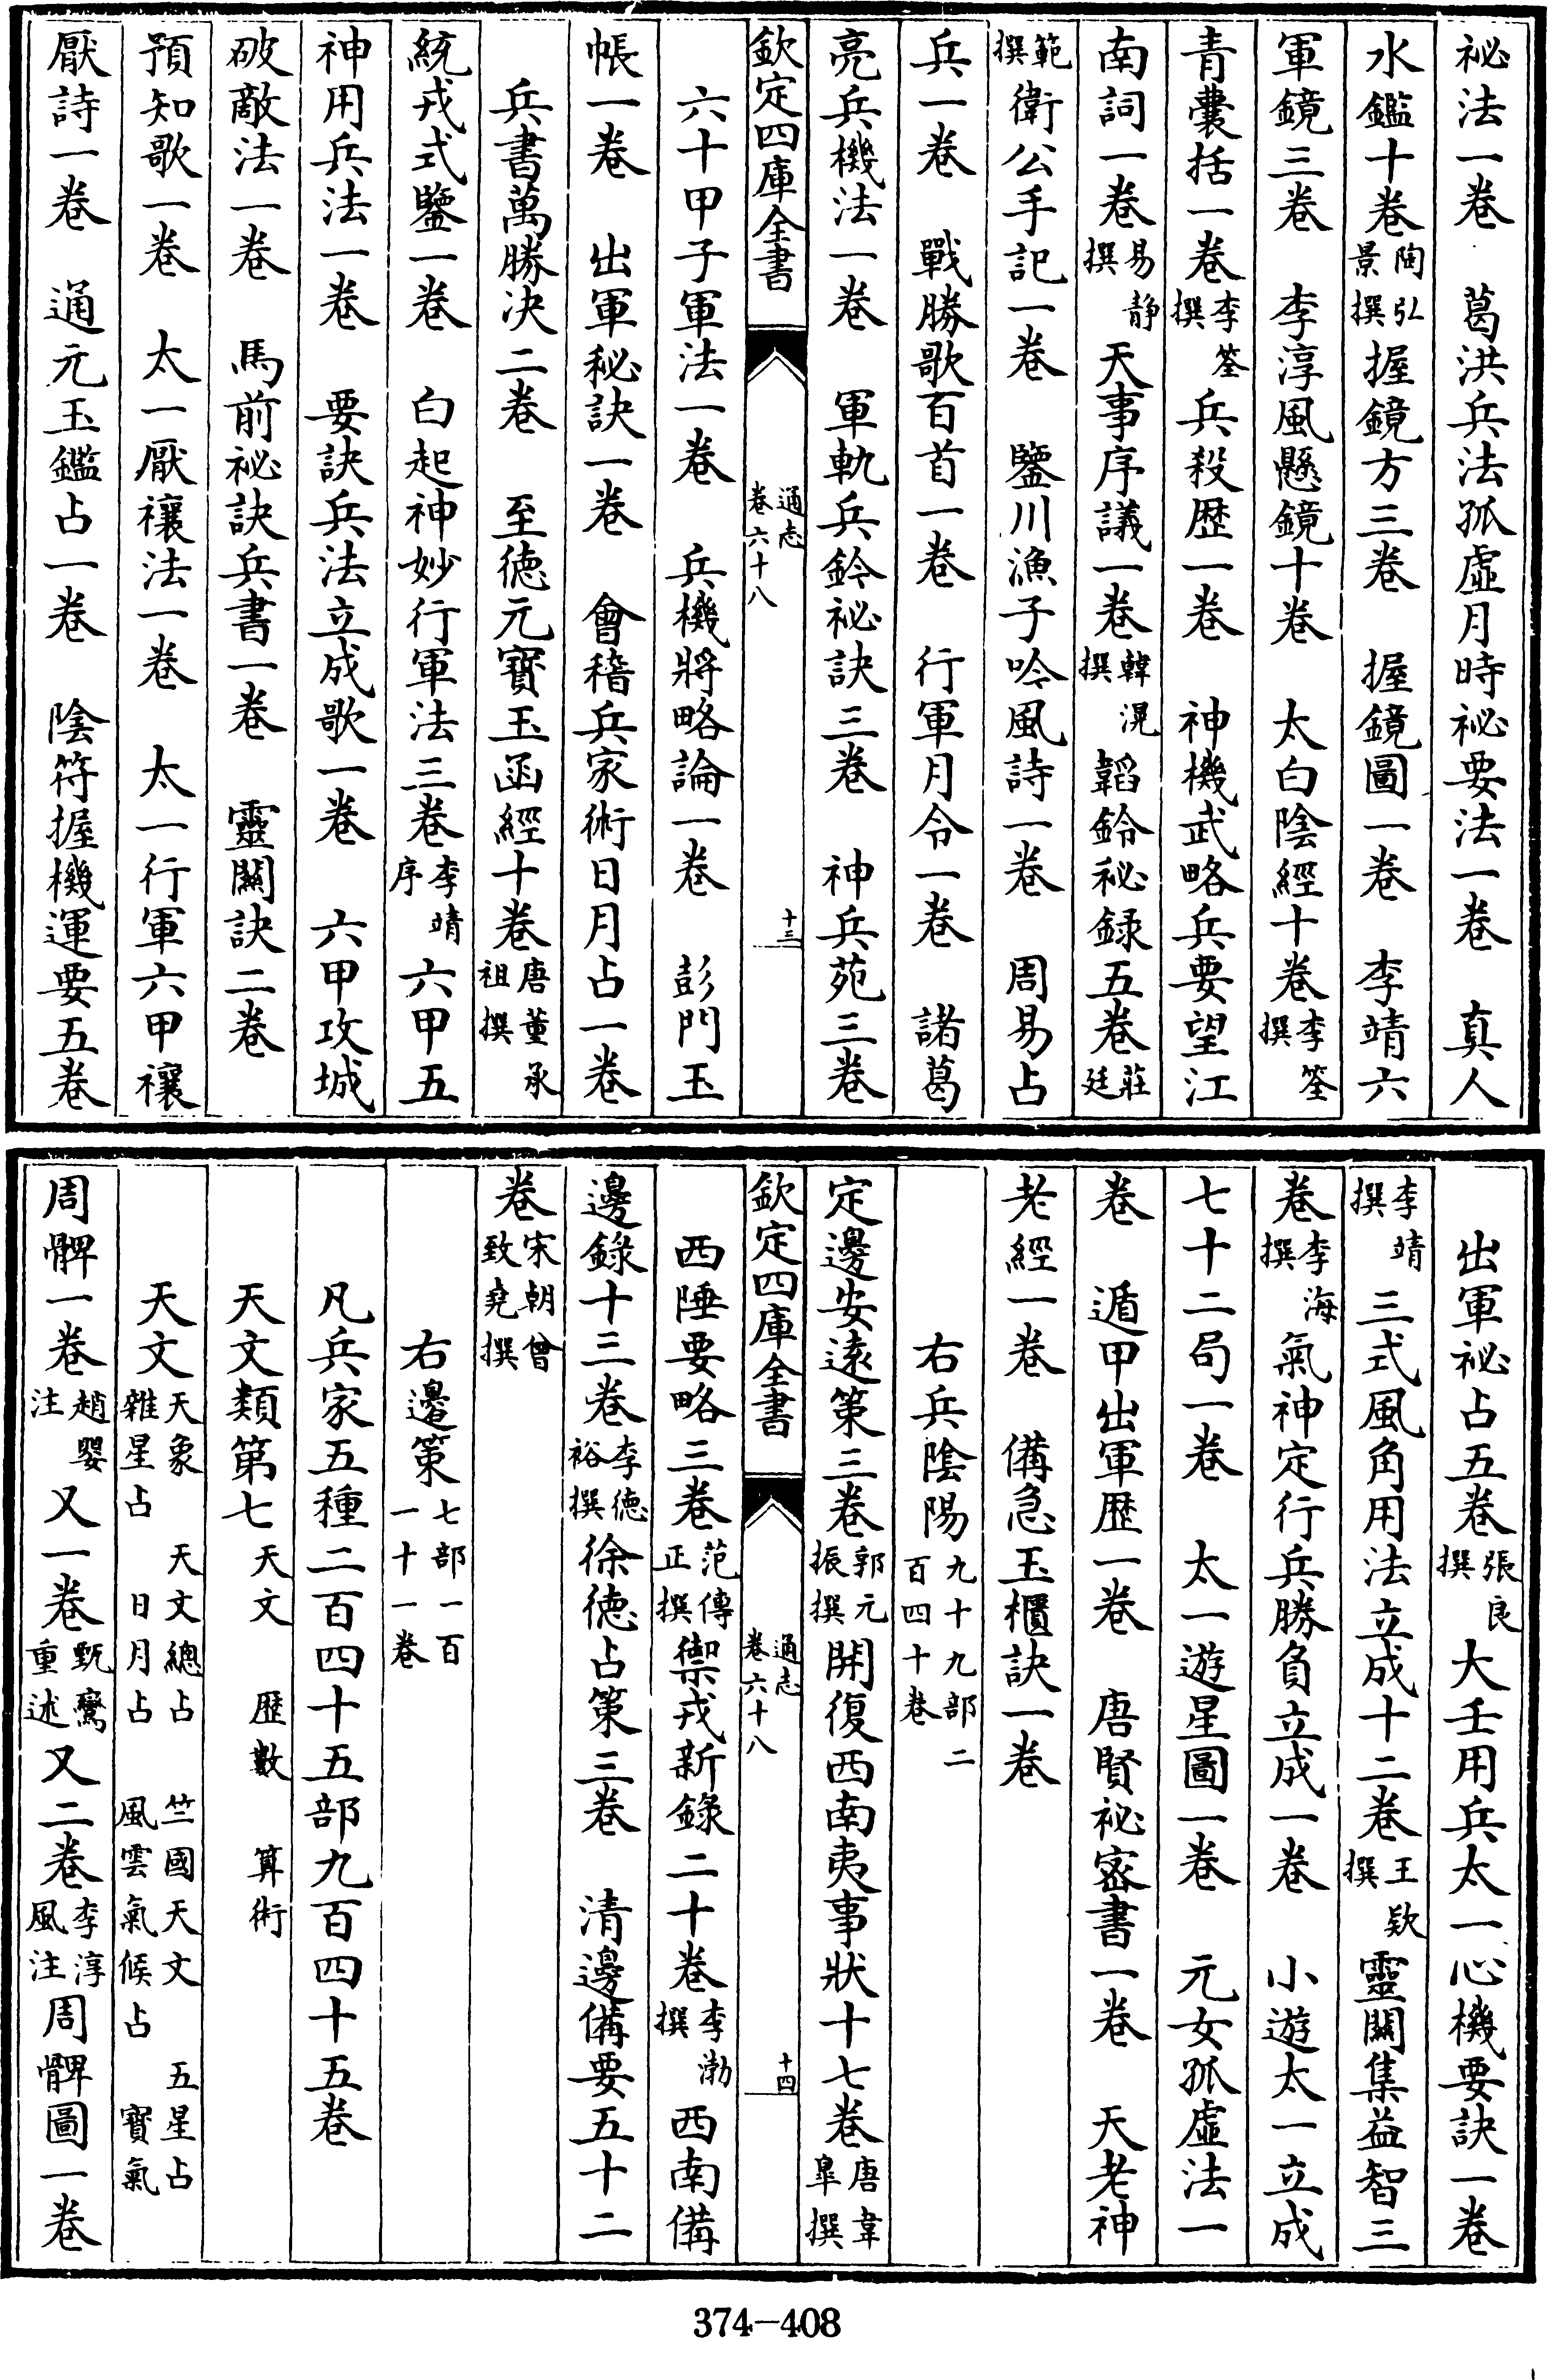 祕法一卷　葛洪兵法孤虛月時祕要法一卷　真人
水鑑十卷陶弘景撰握鏡方三卷　握鏡圖一卷　李靖六
軍鏡三卷　李淳風懸鏡十卷　太白陰經十卷李筌撰
青囊括一卷李筌撰兵殺歴一卷　神機武略兵要望江
南詞一卷易静撰天事序議一卷韓滉撰韜鈐秘録五卷莊廷
範撰衛公手記一卷　鑒川漁子吟風詩一卷　周易占
兵一卷　戰勝歌百首一卷　行軍月令一卷　諸葛
亮兵機法一卷　軍軌兵鈐祕訣三卷　神兵苑三卷
欽定四庫全書　通志卷六十八　十三
六十甲子軍法一卷　兵機將略論一卷　彭門玉
帳一卷　出軍秘訣一卷　會稽兵家術日月占一卷
兵書萬勝決二卷　至徳元寳玉函經十卷唐董承祖撰
統戎式鑒一卷　白起神妙行軍法三卷李靖序六甲五
神用兵法一卷　要訣兵法立成歌一卷　六甲攻城
破敵法一卷　馬前祕訣兵書一卷　靈關訣二卷
預知歌一卷　太一厭禳法一卷　太一行軍六甲禳
厭詩一卷　通元玉鑑占一卷　陰符握機運要五卷
出軍祕占五卷張良撰大壬用兵太一心機要訣一卷
李靖撰三式風角用法立成十二卷王欵撰靈關集益智三
卷李海撰氣神定行兵勝負立成一卷　小遊太一立成
七十二局一卷　太一遊星圖一卷　元女孤虛法一
卷　遁甲出軍歴一卷　唐賢祕密書一卷　天老神
老經一卷　備急玉櫃訣一卷
右兵陰陽九十九部二百四十卷
定邊安遠策三卷郭元振撰開復西南夷事狀十七卷唐韋臯撰
欽定四庫全書　通志卷六十八　十四
西陲要略三卷范傳正撰禦戎新錄二十卷李渤撰西南備
邊錄十三卷李徳裕撰徐徳占策三卷　清邊備要五十二
卷宋朝曾致堯撰
右邊策七部一百一十一卷
凡兵家五種二百四十五部九百四十五卷
天文類第七天文　歴數　算術
天文天象　天文總占　竺國天文　五星占　雜星占　日月占　風雲氣候占　寳氣
周髀一卷趙嬰注又一卷甄鸞重述又二卷李淳風注周髀圖一卷
374-408